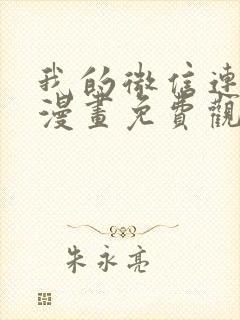 我的微信連
漫畫免費觀
朱永亮